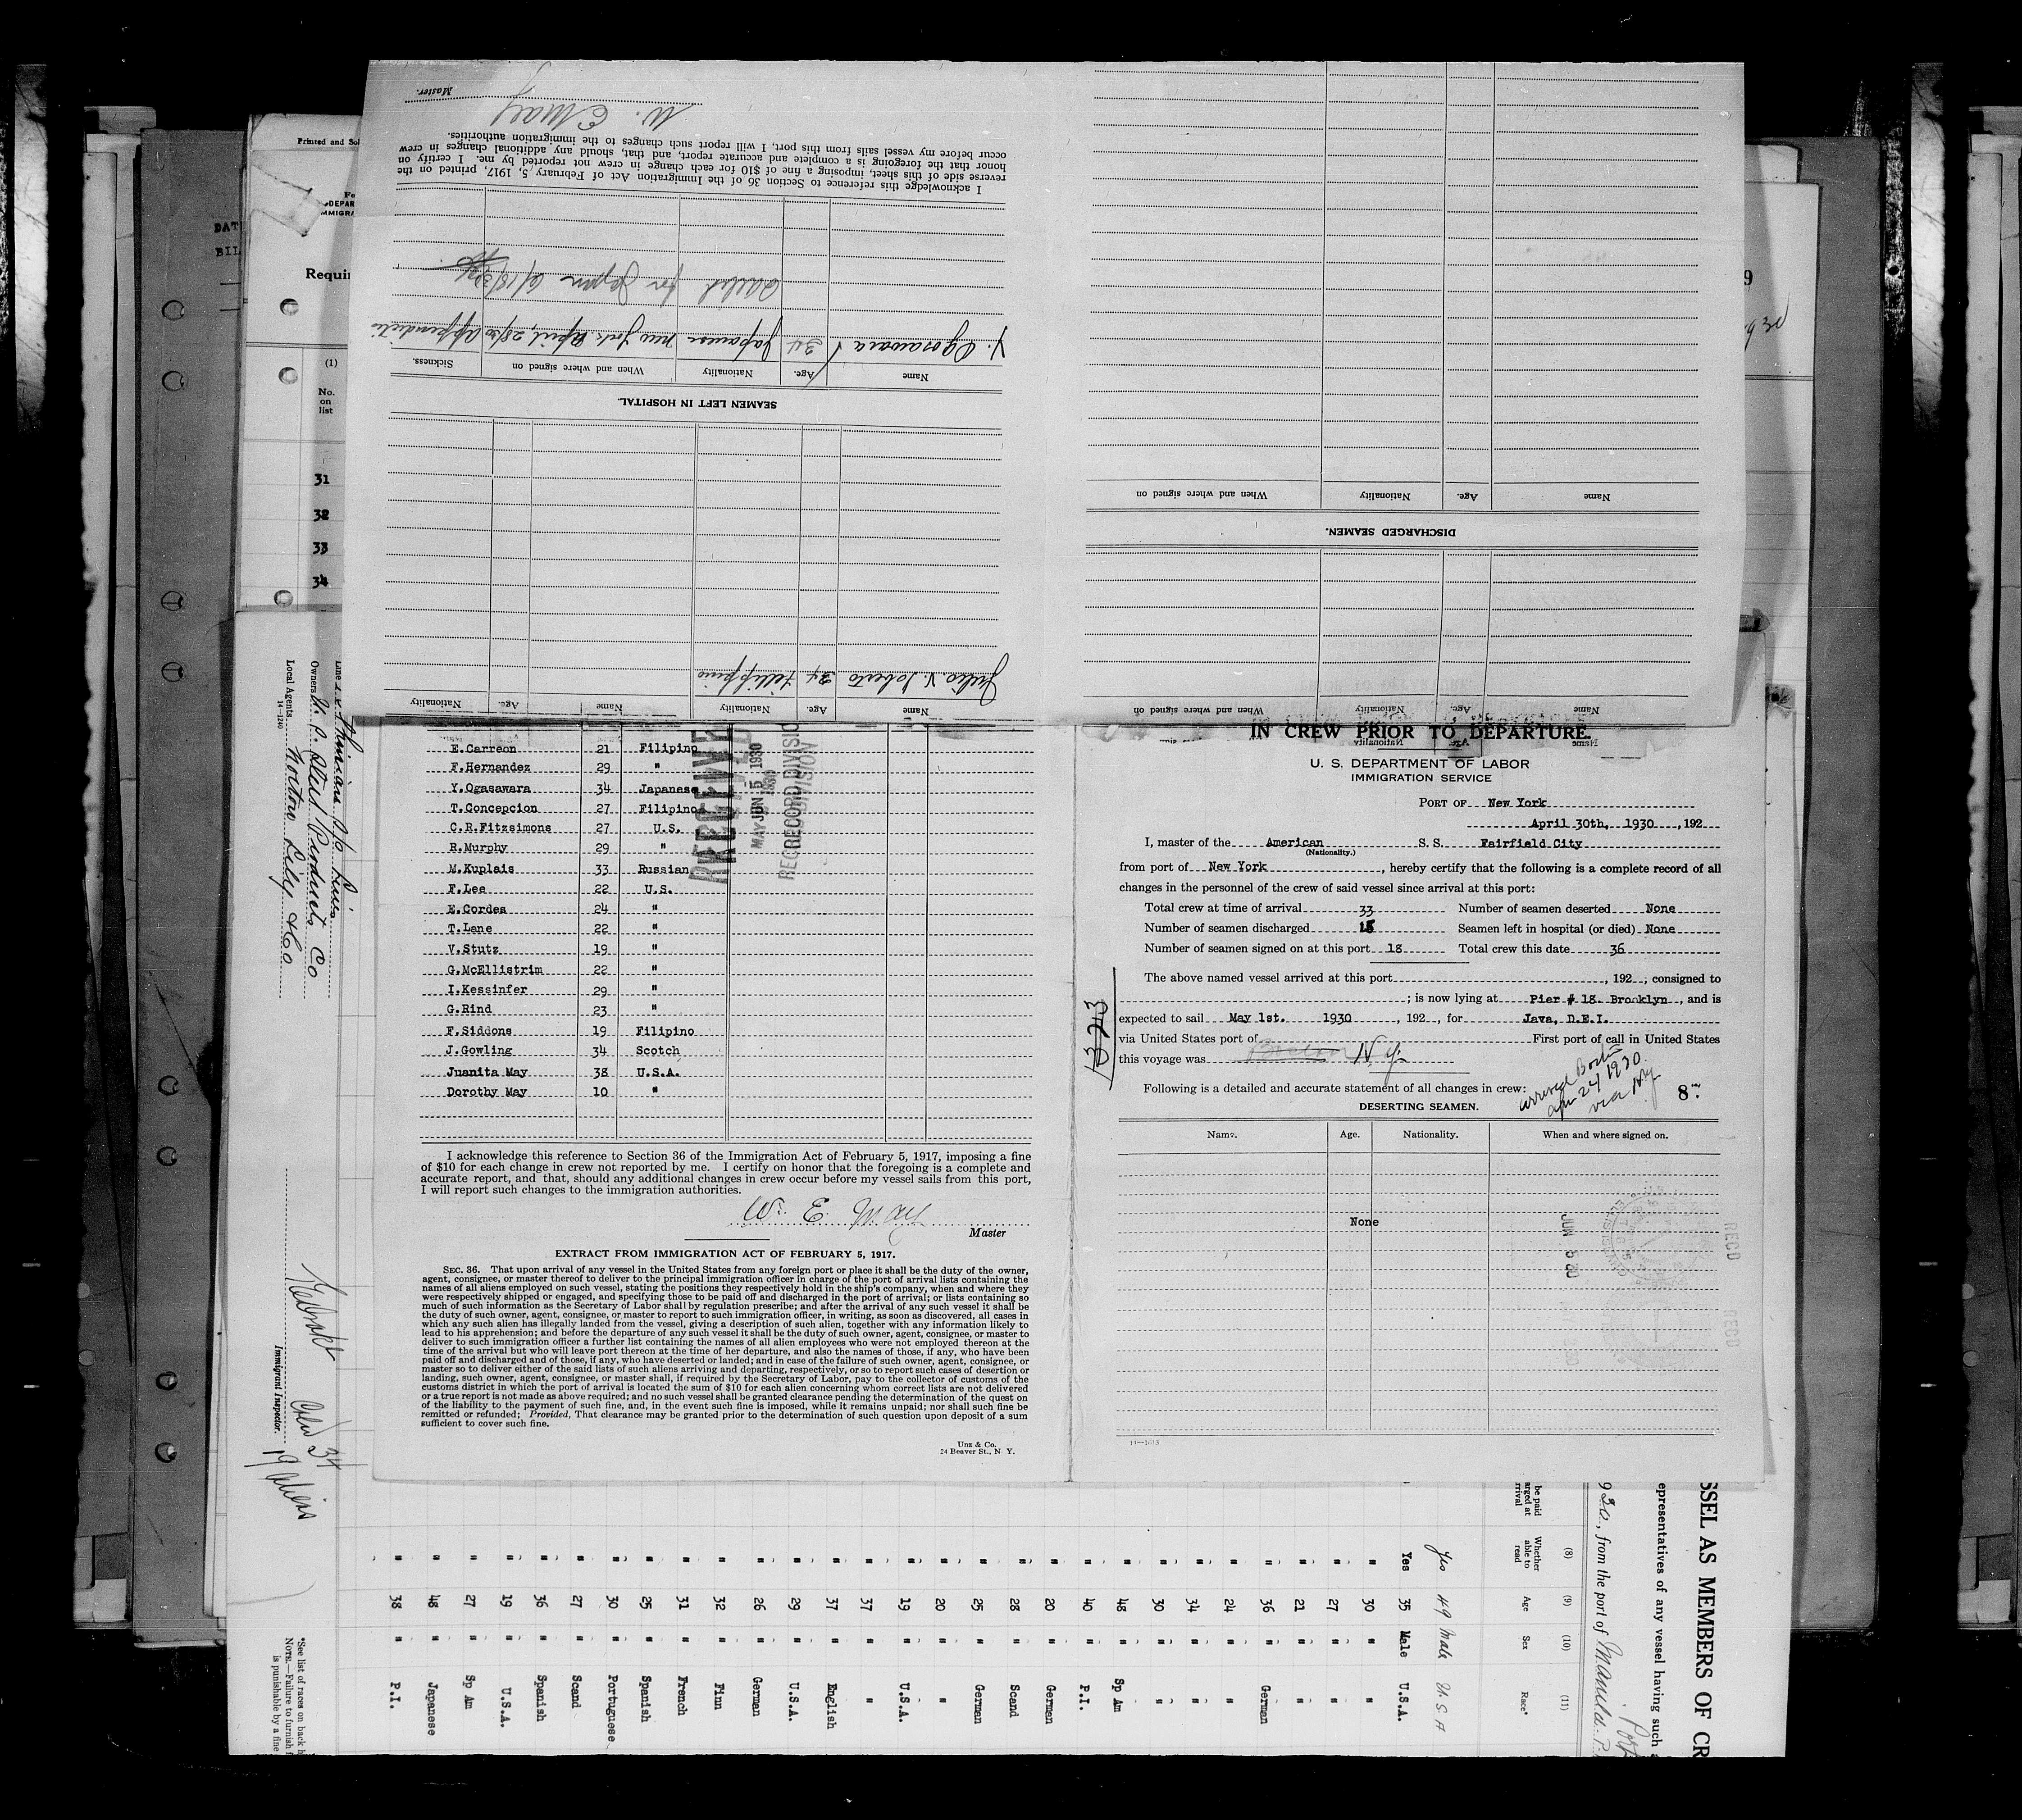 Master.
W. E. May
I acknowledge this reference to Section 36 of the Immigration Act of February 5, 1917, printed on the
reverse side of this sheet, imposing a fine of $10 for each change in crew not reported by me. I certify on
honor that the foregoing is a complete and accurate report, and that, should any additional changes in crew
occur before my vessel sails from this port, I will report such changes to the immigration authorities.
SEAMEN LEFT IN HOSPITAL.
Name Age. Nationality When and where signed on Sickness.
Y. Ogasawara 34 Japanese New York April 28/30 Appendicitis
Sailed for Japan 6/18/30
Name Age. Nationality Name Age. Nationality
Julio V. Loberto 34 Fillippino
DISCHARGED SEAMEN.
Name Age. Nationality When and where signed on
Name Age. Nationality When and where signed on
E.Carreon 21 Filipino
F.Hernandez 29 "
Y.Ogasawara 34 Japanese
T.Concepcion 27 Filipino
C.R.Fitzsimons 27 U.S.
R.Murphy 29 "
M.Kuplais 33 Russian
F.Lee 22 U.S.
E.Cordes 24 "
T.Lane 22 "
V.Stutz 19 "
G.McEllistrim 22 "
I.Kessinfer 29 "
G.Rind 23 "
F.Siddons 19 Filipino
J.Gowling 34 Scotch
Juanita May 38 U.S.A.
Dorothy May 10 "
RECEIVED
JUN 5 1930
RECORD DIVISION
I acknowledge this reference to Section 36 of the Immigration Act of February 5, 1917, imposing a fine
of $10 for each change in crew not reported by me. I certify on honor that the foregoing is a complete and
accurate report, and that, should any additional changes in crew occur before my vessel sails from this port,
I will report such changes to the immigration authorities.
W. E. May
Master
EXTRACT FROM IMMIGRATION ACT OF FEBRUARY 5, 1917.
SEC. 36. That upon arrival of any vessel in the United States from any foreign port or place it shall be the duty of the owner,
agent, consignee, or master thereof to deliver to the principal immigration officer in charge of the port of arrival lists containing the
names of all aliens employed on such vessel, stating the positions they respectively hold in the ship's company, when and where they
were respectively shipped or engaged, and specifying those to be paid off and discharged in the port of arrival; or lists containing so
much of such information as the Secretary of Labor shall by regulation prescribe; and after the arrival of any such vessel it shall be
the duty of such owner, agent, consignee, or master to report to such immigration officer, in writing, as soon as discovered, all cases in
which any such alien has illegally landed from the vessel, giving a description of such alien, together with any information likely to
lead to his apprehension; and before the departure of any such vessel it shall be the duty of such owner, agent, consignee, or master to
deliver to such immigration officer a further list containing the names of all alien employees who were not employed thereon at the
time of the arrival but who will leave port thereon at the time of her departure, and also the names of those, if any, who have been
paid off and discharged and of those, if any, who have deserted or landed; and in case of the failure of such owner, agent, consignee, or
master so to deliver either of the said lists of such aliens arriving and departing, respectively, or so to report such cases of desertion or
landing, such owner, agent, consignee, or master shall, if required by the Secretary of Labor, pay to the collector of customs of the
customs district in which the port of arrival is located the sum of $10 for each alien concerning whom correct lists are not delivered
or a true report is not made as above required; and no such vessel shall be granted clearance pending the determination of the quest on
of the liability to the payment of such fine, and, in the event such fine is imposed, while it remains unpaid; nor shall such fine be
remitted or refunded; Provided, That clearance may be granted prior to the determination of such question upon deposit of a sum
sufficient to cover such fine.
Unz & Co.
24 Beaver St., N. Y.
IN CREW PRIOR TO DEPARTURE.
U. S. DEPARTMENT OF LABOR
IMMIGRATION SERVICE
PORT OF New York
April 30th, 1930 , 192
I, master of the American S. S. Fairfield City
(Nationality.)
from port of New York , hereby certify that the following is a complete record of all
changes in the personnel of the crew of said vessel since arrival at this port:
Total crew at time of arrival 33 Number of seamen deserted None
Number of seamen discharged 15 Seamen left in hospital (or died) None
Number of seamen signed on at this port 18 Total crew this date 36
The above named vessel arrived at this port , 192 , consigned to
; is now lying at Pier # 18 Brooklyn , and is
expected to sail May 1st. 1930 , 192 , for Java, D.E.I.
via United States port of First port of call in United States
this voyage was Boston N.Y.
Following is a detailed and accurate statement of all changes in crew:
arrived Boston
apr 24 1930
via N.Y.
8
DESERTING SEAMEN.
Name. Age. Nationality. When and where signed on.
None
JUN 5 30
RECD
RECD
14—1613
1373
Printed and Sol
DEPAR
IMMIGRA
Requir
(1)
No.
on
list
31
32
33
34
DAT
BIL
Line Isthmian S/S Line
Owners U. S. Steel Products Co
Local Agents Norton Lilly & Co
14-1240
Immigrant Inspector.
Crew 34
19 aliens
*See list of races on back h
NOTE.—Failure to furnish f
is punishable by a fine
SSEL AS MEMBERS OF CR
epresentatives of any vessel having such
930, from the port of Manila P.
Port
be paid
arged at
rrival
(8) Whether able to read
(9) Age
(10) Sex
(11) Race*
yes 49 male U.S.A
Yes 35 Male U.S.A.
" 30 " "
" 27 " "
" 21 " "
" 36 " German
" 24 " "
" 34 " "
" 30 " "
" 48 " Sp Am
" 40 " P.I.
" 20 " German
" 28 " Scand
" 25 " German
" 20 " "
" 19 " U.S.A.
" 37 " "
" 37 " English
" 29 " U.S.A.
" 26 " German
" 32 " Finn
" 31 " French
" 25 " Spanish
" 30 " Portuguese
" 27 " Scand
" 36 " Spanish
" 19 " U.S.A.
" 27 " Sp Am
" 48 " Japanese
" 38 " P.I.